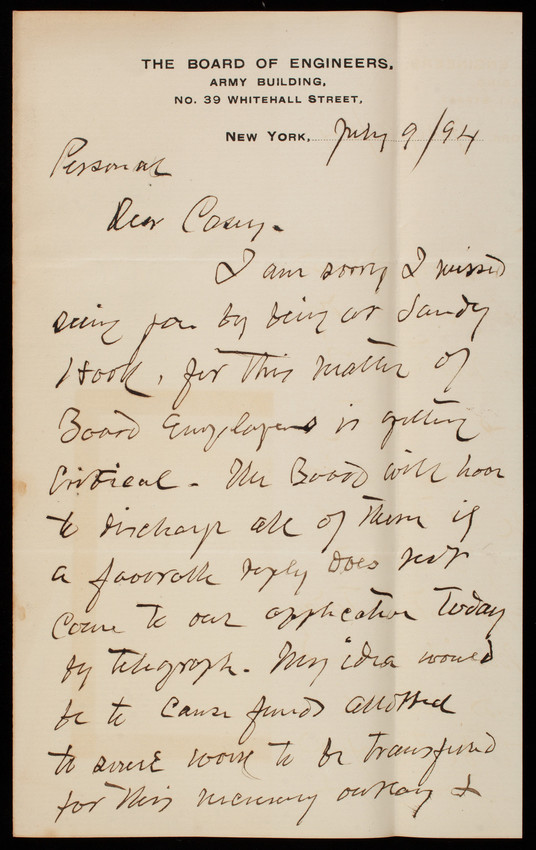 THE BOARD OF ENGINEERS,
ARMY BUILDING,
NO. 39 WHITEHALL STREET,
NEW YORK, July 9/94
Personal
Dear Casey.
I am sorry I missed
seeing you by being at Sandy
Hook, for this matter of
Board Employees is getting
critical. The Board will have
to discharge all of them if
a favorable reply does not
come to our application today
by telegraph. My idea would
be to cause funds allotted
to some work to be transferred
for this necessary outlay &